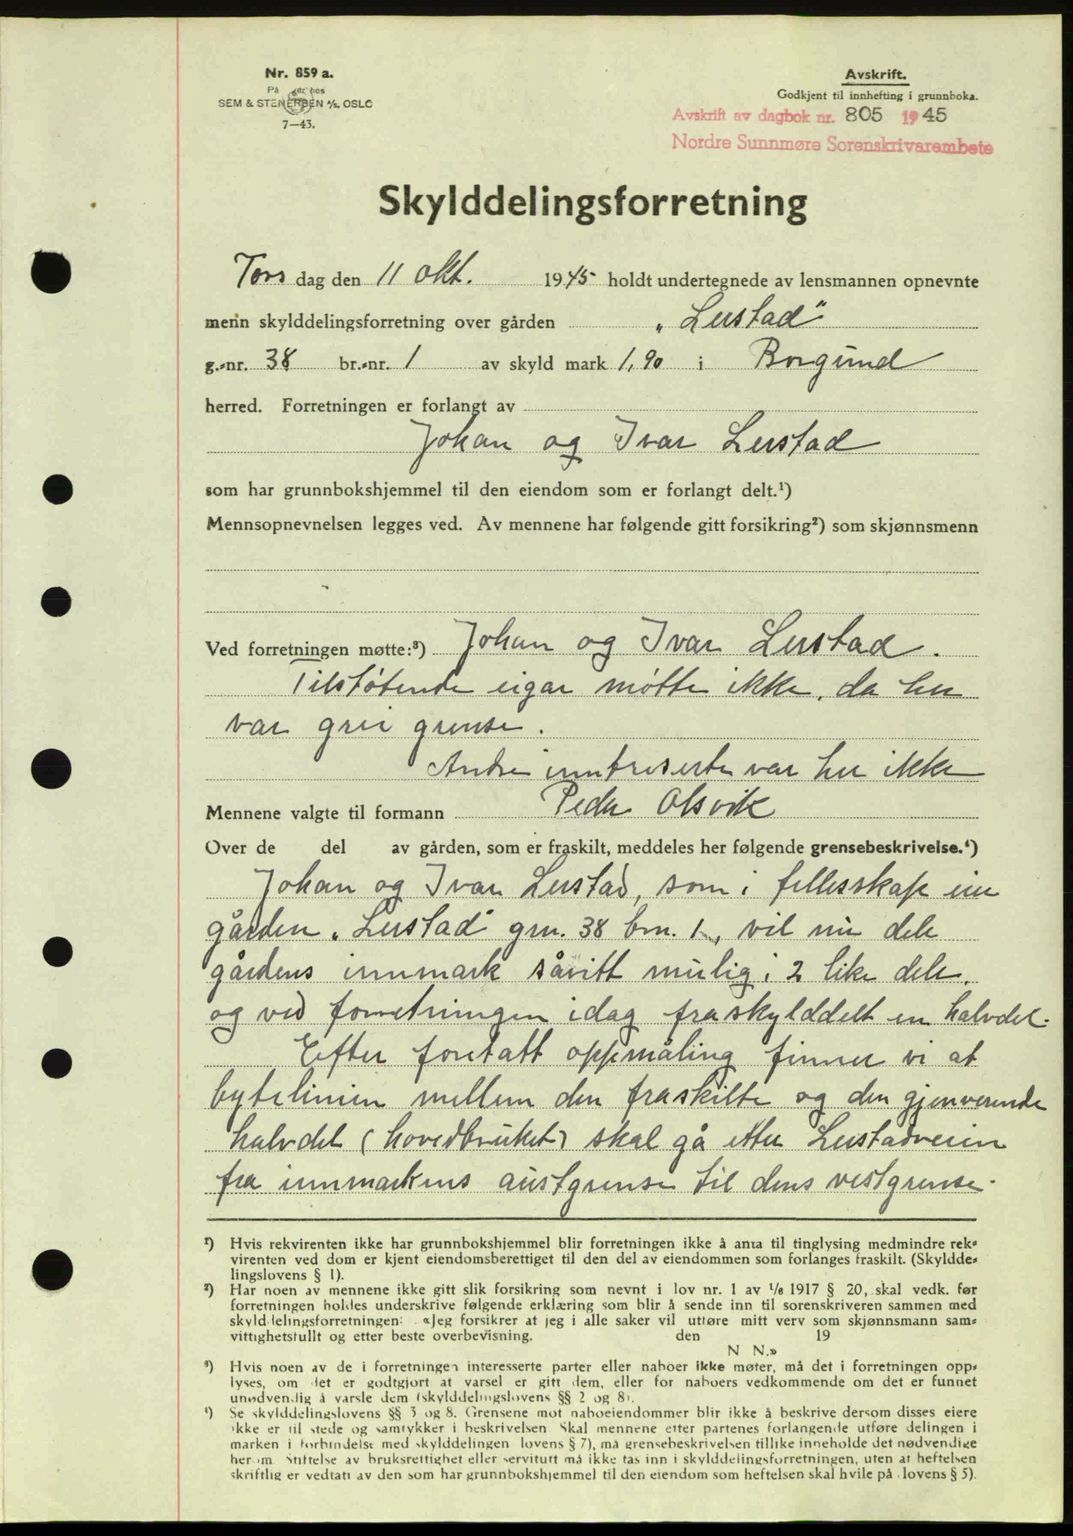 Nr. 859 a.
På lager hos
SEM & STENERSEN A/S, OSLO
7—43.
Avskrift.
Godkjent til innhefting i grunnboka.
Avskrift av dagbok nr. 805 1945
Nordre Sunnmøre Sorenskrivarembete
Skylddelingsforretning
Tors dag den 11 okt. 1945 holdt undertegnede av lensmannen opnevnte
menn skylddelingsforretning over gården „Lerstad"
g.-nr. 38 br.-nr. 1 av skyld mark 1,90 i Borgund
herred. Forretningen er forlangt av
Johan og Ivar Lerstad
som har grunnbokshjemmel til den eiendom som er forlangt delt.¹)
Mennsopnevnelsen legges ved. Av mennene har følgende gitt forsikring²) som skjønnsmenn
Ved forretningen møtte:³) Johan og Ivar Lerstad.
Tilstøtende eigar møtte ikke, da her
var grei grense.
Andre inntreserte var her ikke
Mennene valgte til formann Peder Olsvik
Over de del av gården, som er fraskilt, meddeles her følgende grensebeskrivelse.⁴)
Johan og Ivar Lerstad, som i fellesskap eier
gården „Lerstad" grn. 38 brn. 1, vil nu dele
gårdens innmark såvitt mulig i 2 like dele,
og ved forretningen idag fraskylddelt en halvdel.
Efter foretatt oppmåling finner vi at
bytelinien mellem den fraskilte og den gjenverende
halvdel (hovedbruket) skal gå etter Lerstadveien
fra innmarkens austgrense til dens vestgrense.
¹) Hvis rekvirenten ikke har grunnbokshjemmel blir forretningen ikke å anta til tinglysing medmindre rek-
virenten ved dom er kjent eiendomsberettiget til den del av eiendommen som forlanges fraskilt. (Skyldde-
lingslovens § 1).
²) Har noen av mennene ikke gitt slik forsikring som nevnt i lov nr. 1 av 1/6 1917 § 20, skal vedk. før
forretningen holdes underskrive følgende erklæring som blir å sende inn til sorenskriveren sammen med
skylddelingsforretningen: «Jeg forsikrer at jeg i alle saker vil utføre mitt verv som skjønnsmann sam-
vittighetsfullt og etter beste overbevisning. den 19
N N.»
³) Hvis noen av de i forretningen interesserte parter eller naboer ikke møter, må det i forretningen opp-
lyses, om det er godtgjort at varsel er gitt dem, eller for naboers vedkommende om det er funnet
unødvendig å varsle dem (skylddelingslovens §§ 2 og 8).
⁴) Se skylddelingslovens §§ 3 og 8. Grensene mot naboeiendommer blir ikke å beskrive dersom disses eiere
ikke er til stede og samtykker i beskrivelsen. Skal mennene etter partenes forlangende utføre delingen i
marken i forbindelse med skylddelingen (lovens § 7), må grensebeskrivelsen tillike inneholde det nødvendige
herom. Stiftelse av bruksrettighet eller servitutt må ikke tas inn i skylddelingsforretningen, uten at heftelsen
skriftlig er vedtatt av den som har grunnbokshjemmel til den eiendom som heftelsen skal hvile på (lovens § 5).